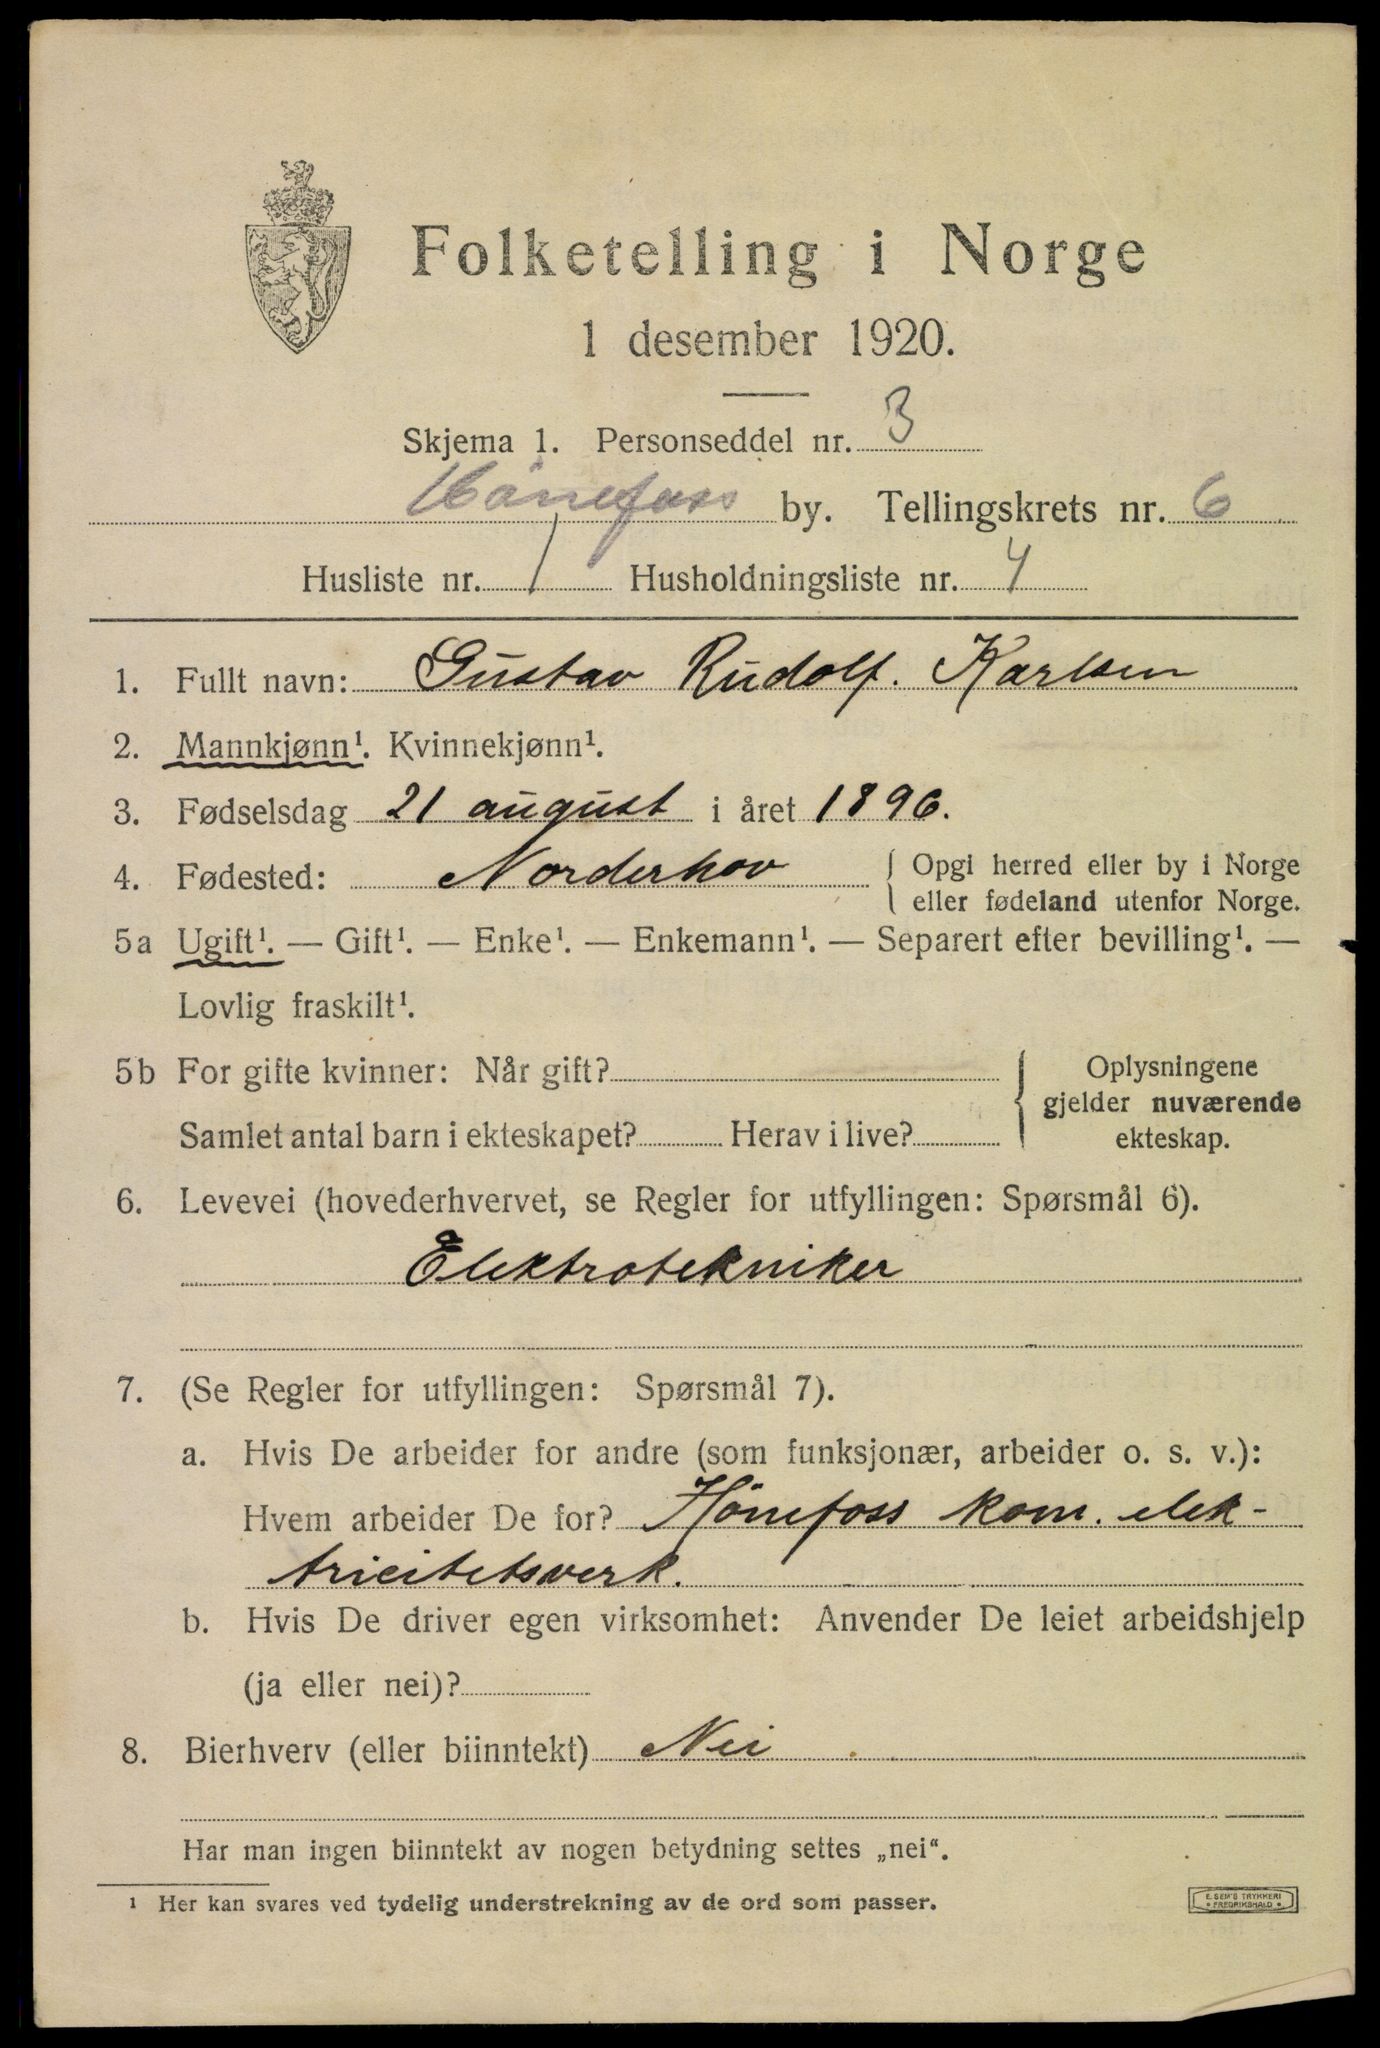 Folketelling i Norge
1 desember 1920.
Skjema 1. Personseddel nr. 3
Hönefoss by. Tellingskrets nr. 6
Husliste nr. 1 Husholdningsliste nr. 4
1. Fullt navn: Gustav Rudolf. Karlsen
2. Mannkjønn¹. Kvinnekjønn¹.
3. Fødselsdag 21 august i året 1896.
4. Fødested: Norderhov { Opgi herred eller by i Norge
eller fødeland utenfor Norge.
5a Ugift¹. — Gift¹. — Enke¹. — Enkemann¹. — Separert efter bevilling¹. —
Lovlig fraskilt¹.
5b For gifte kvinner: Når gift?
Samlet antal barn i ekteskapet? Herav i live?
{ Oplysningene
gjelder nuværende
ekteskap.
6. Levevei (hovederhvervet, se Regler for utfyllingen: Spørsmål 6).
Elektrotekniker
7. (Se Regler for utfyllingen: Spørsmål 7).
a. Hvis De arbeider for andre (som funksjonær, arbeider o. s. v.):
Hvem arbeider De for? Hönefoss kom. elek-
tricitetsverk.
b. Hvis De driver egen virksomhet: Anvender De leiet arbeidshjelp
(ja eller nei)?
8. Bierhverv (eller biinntekt) Nei
Har man ingen biinntekt av nogen betydning settes „nei“.
¹ Her kan svares ved tydelig understrekning av de ord som passer.
E. SEM'S TRYKKERI
• FREDRIKSHALD •